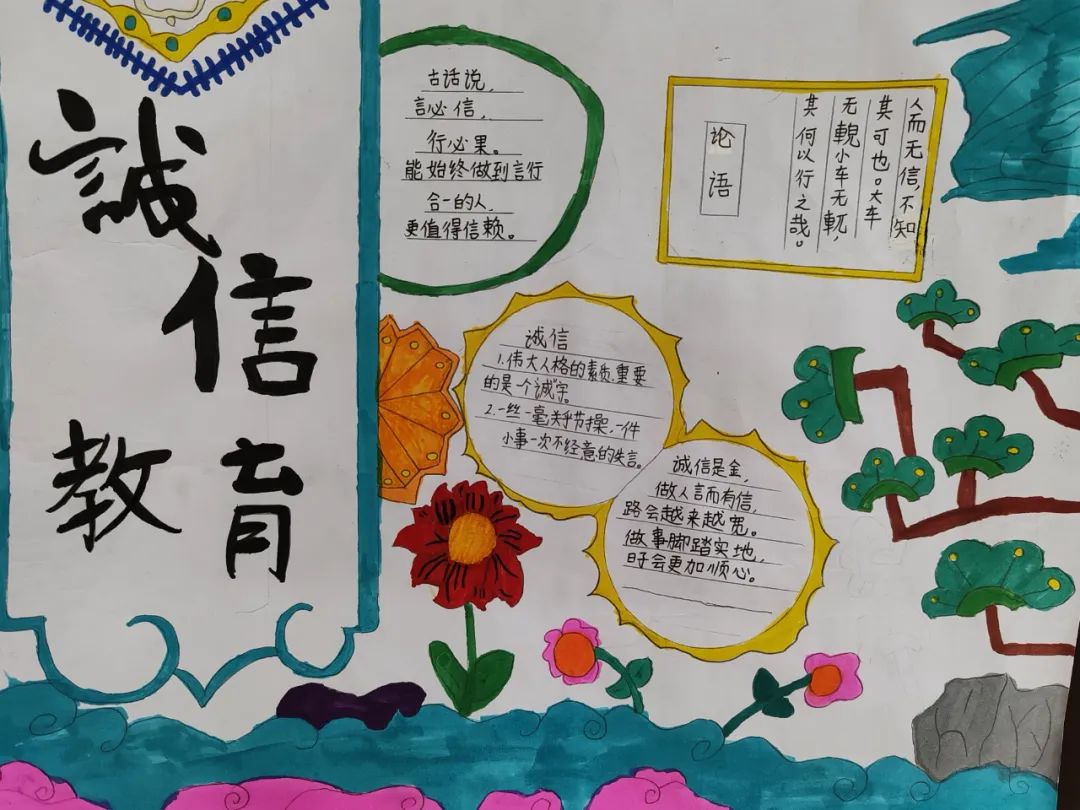 誠信
教育
古话说，
言必信，
行必果。
能始终做到言行
合一的人，
更值得信赖。
论语
人而无信，不知
其可也。大车
无輗小车无軏，
其何以行之哉。
诚信
1.伟大人格的素质，重要
的是一个诚字。
2.一丝一毫关乎节操，一件
小事一次不经意的失言。
诚信是金，
做人言而有信，
路会越来越宽。
做事脚踏实地，
时会更加顺心。